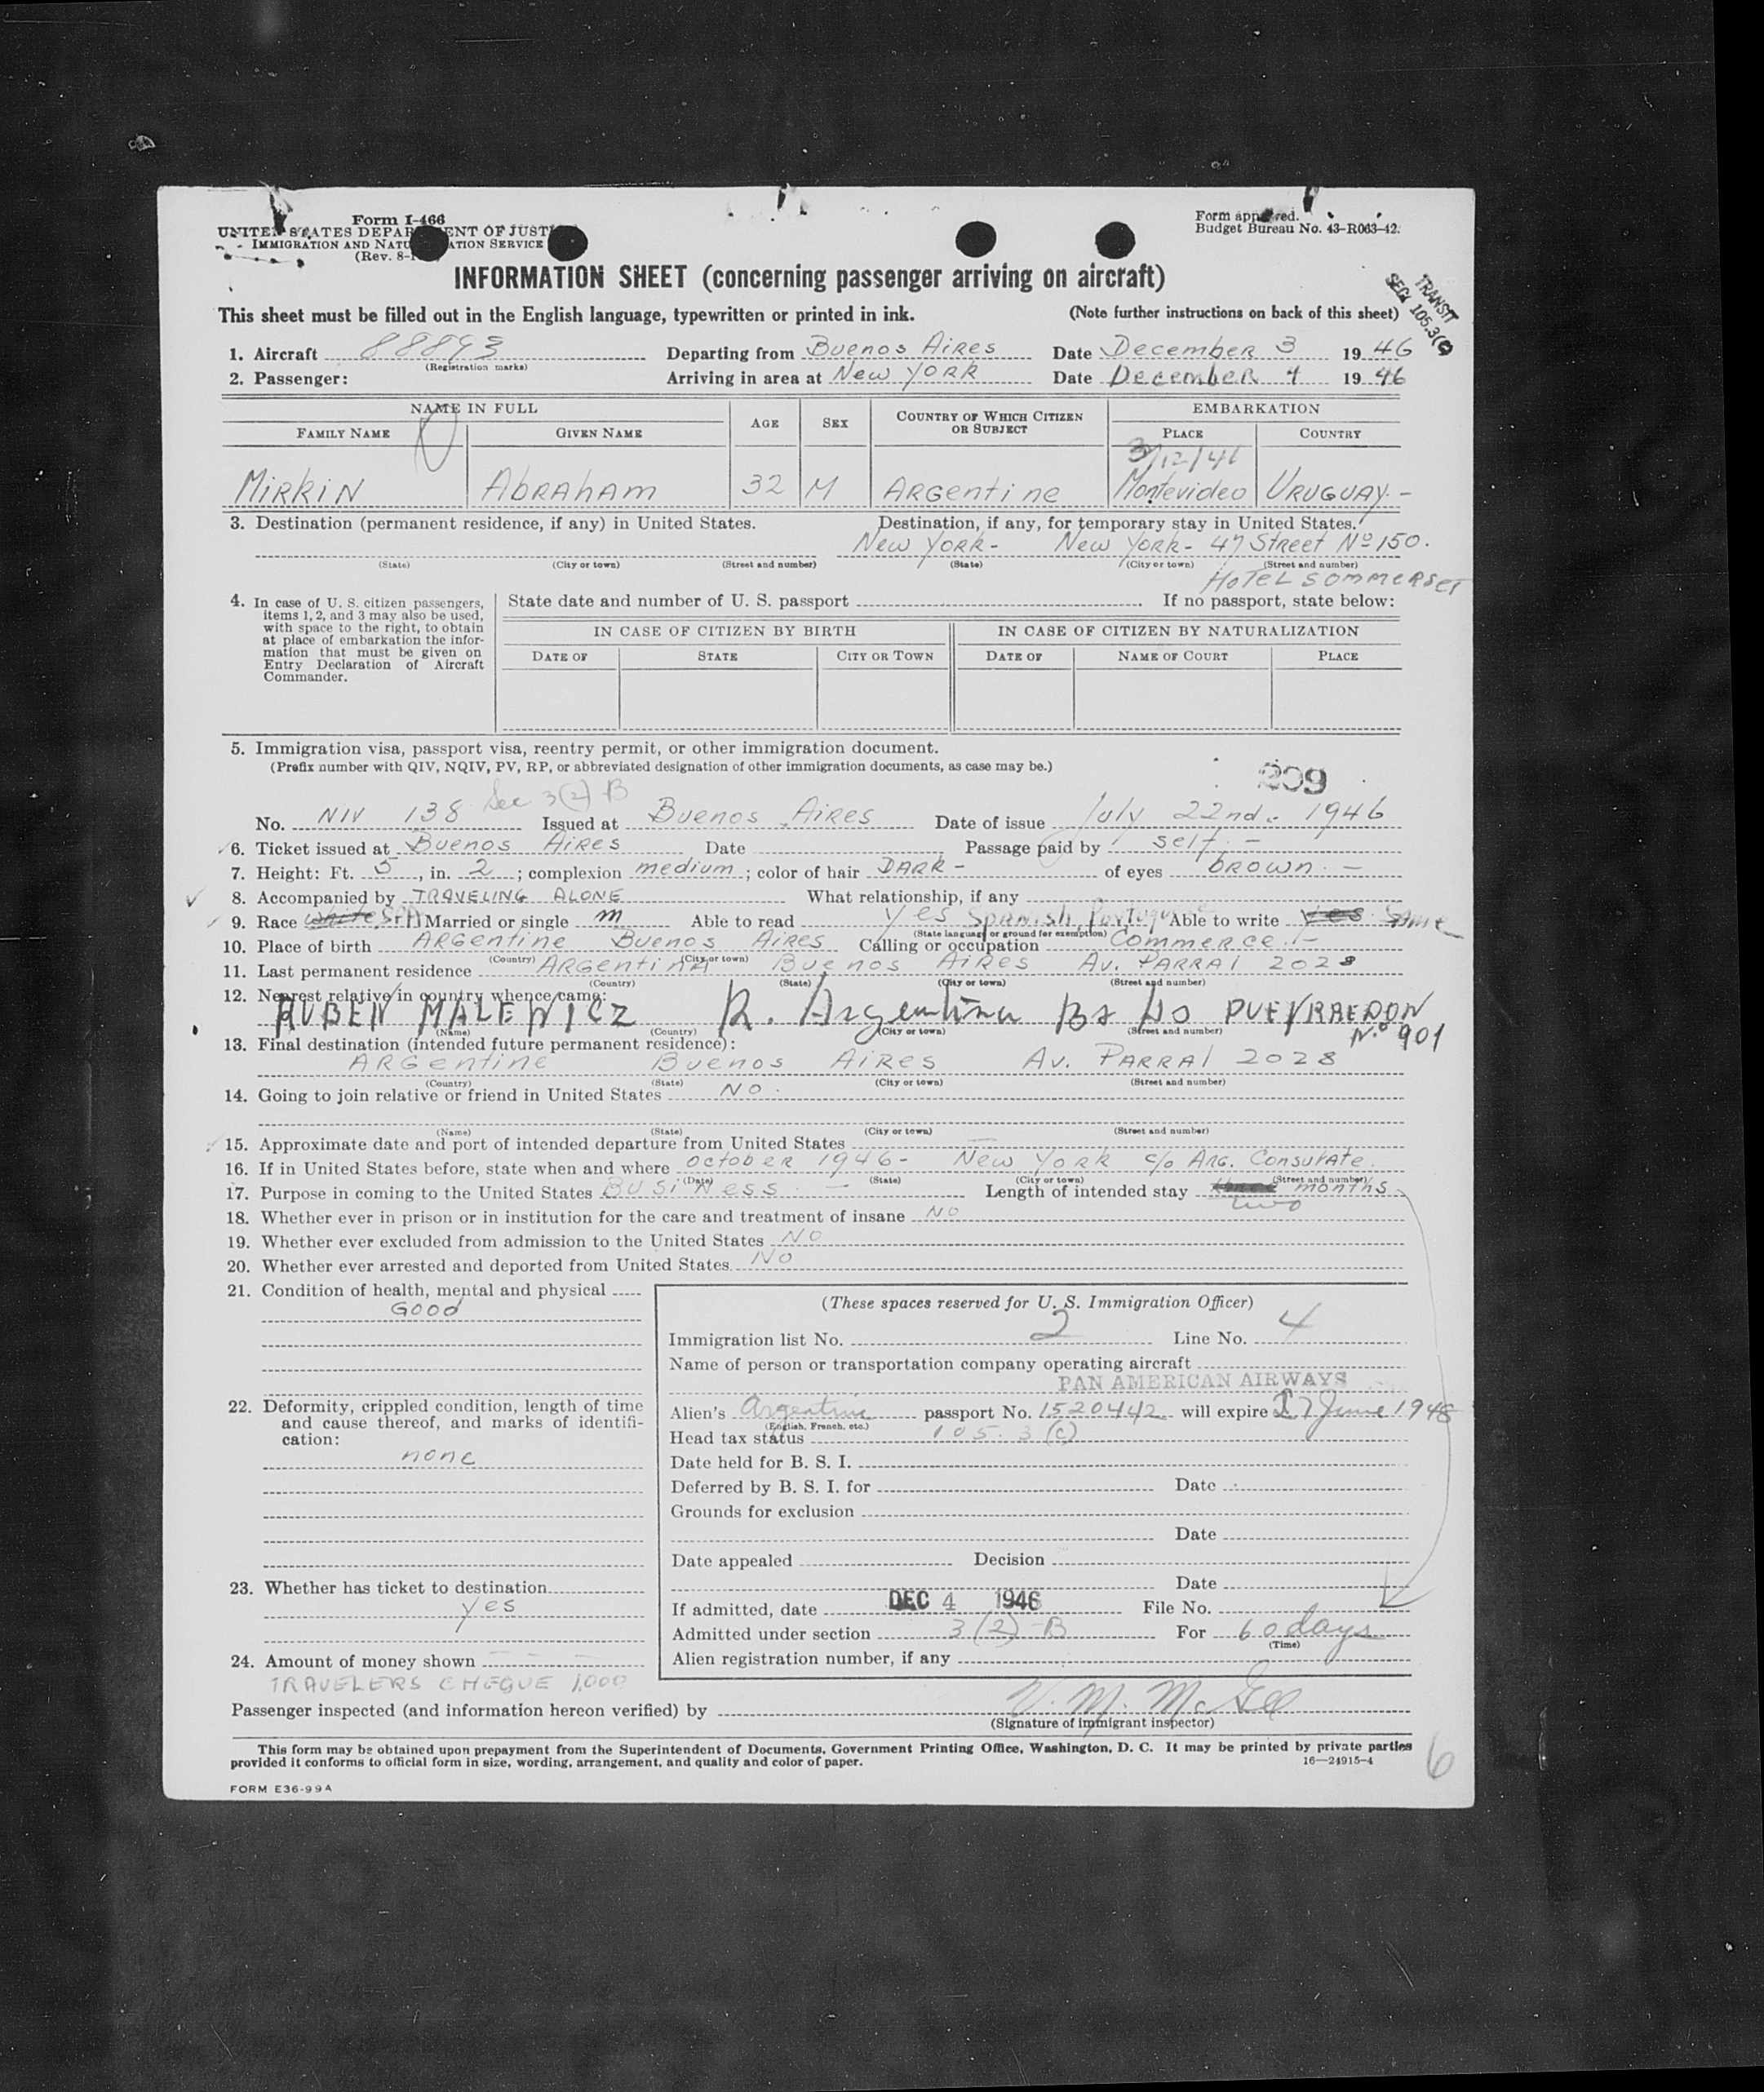 Form I-466
UNITED STATES DEPARTMENT OF JUSTICE
IMMIGRATION AND NATURALIZATION SERVICE
(Rev. 8-1
Form approved.
Budget Bureau No. 43-R063-42.
INFORMATION SHEET (concerning passenger arriving on aircraft)
TRANSIT
SEC. 105.3(c)
This sheet must be filled out in the English language, typewritten or printed in ink. (Note further instructions on back of this sheet)
1. Aircraft 88893 Departing from Buenos Aires Date December 3 1946
(Registration marks)
2. Passenger: Arriving in area at New York Date December 4 1946
NAME IN FULL AGE SEX COUNTRY OF WHICH CITIZEN OR SUBJECT EMBARKATION
FAMILY NAME GIVEN NAME PLACE COUNTRY
3/12/46
MIRKIN ABRAHAM 32 M ARGentine Montevideo URUGUAY.-
3. Destination (permanent residence, if any) in United States. Destination, if any, for temporary stay in United States.
New York- New York- 47 Street Nº 150.
(State) (City or town) (Street and number) (State) (City or town) (Street and number)
HOTEL SOMMERSET
4. In case of U. S. citizen passengers, items 1, 2, and 3 may also be used, with space to the right, to obtain at place of embarkation the information that must be given on Entry Declaration of Aircraft Commander.
State date and number of U. S. passport If no passport, state below:
IN CASE OF CITIZEN BY BIRTH IN CASE OF CITIZEN BY NATURALIZATION
DATE OF STATE CITY OR TOWN DATE OF NAME OF COURT PLACE
5. Immigration visa, passport visa, reentry permit, or other immigration document.
(Prefix number with QIV, NQIV, PV, RP, or abbreviated designation of other immigration documents, as case may be.)
209
Sec 3(2) B
No. NIV 138 Issued at Buenos Aires Date of issue July 22nd. 1946
6. Ticket issued at Buenos Aires Date Passage paid by self.-
7. Height: Ft. 5, in. 2; complexion medium; color of hair DARK- of eyes brown.-
8. Accompanied by TRAVELING ALONE What relationship, if any
9. Race white Married or single m Able to read yes Spanish, Portuguese Able to write yes Same
(State language or ground for exemption)
10. Place of birth ARGentine Buenos Aires Calling or occupation Commerce.-
(Country) (City or town)
11. Last permanent residence ARGENTINA Buenos Aires Av. PARRAl 2028
(Country) (State) (City or town) (Street and number)
12. Nearest relative in country whence came:
RUBEN MALEWICZ R. Argentina Bs As PUEYRREDON
Nº 901
(Name) (Country) (City or town) (Street and number)
13. Final destination (intended future permanent residence):
ARGentine Buenos Aires Av. PARRAl 2028
(Country) (State) (City or town) (Street and number)
14. Going to join relative or friend in United States NO.
(Name) (State) (City or town) (Street and number)
15. Approximate date and port of intended departure from United States
16. If in United States before, state when and where October 1946- New York c/o ARG. Consulate.
(Date) (State) (City or town) (Street and number)
17. Purpose in coming to the United States Business.- Length of intended stay months
two
18. Whether ever in prison or in institution for the care and treatment of insane NO
19. Whether ever excluded from admission to the United States NO
20. Whether ever arrested and deported from United States NO
21. Condition of health, mental and physical
Good
22. Deformity, crippled condition, length of time and cause thereof, and marks of identification:
none
23. Whether has ticket to destination
yes
24. Amount of money shown
TRAVELERS CHEQUE 1,000
(These spaces reserved for U. S. Immigration Officer)
Immigration list No. 2 Line No. 4
Name of person or transportation company operating aircraft
PAN AMERICAN AIRWAYS
Alien's Argentine passport No. 1520442 will expire 27 June 1948
(English, French, etc.)
Head tax status 105.3(c)
Date held for B. S. I.
Deferred by B. S. I. for Date
Grounds for exclusion
Date
Date appealed Decision
Date
If admitted, date DEC 4 1946 File No.
Admitted under section 3(2) B For 60 days
(Time)
Alien registration number, if any
Passenger inspected (and information hereon verified) by V. M. McGee
(Signature of immigrant inspector)
This form may be obtained upon prepayment from the Superintendent of Documents, Government Printing Office, Washington, D. C. It may be printed by private parties
provided it conforms to official form in size, wording, arrangement, and quality and color of paper. 16—24915-4
FORM E36-99A
6